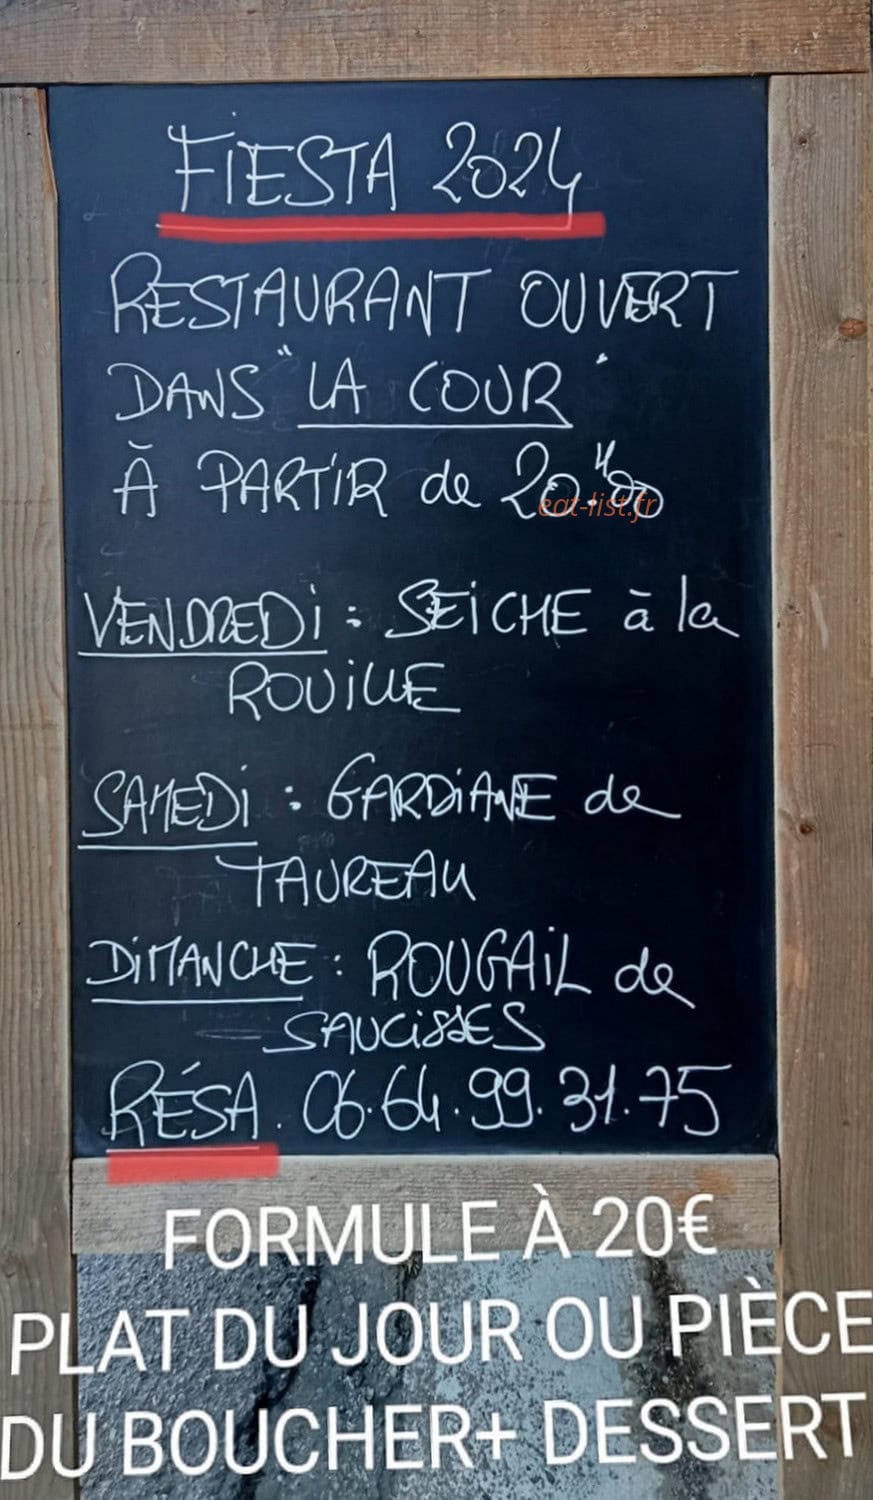 FIESTA 2024
RESTAURANT OUVERT
DANS "LA COUR"
À PARTIR de 20.H00
eat-list.fr
VENDREDI : SEICHE à la
ROUILLE
SAMEDI : GARDIANE de
TAUREAU
DIMANCHE : ROUGAIL de
SAUCISSES
RÉSA. 06.64.99.31.75
FORMULE À 20€
PLAT DU JOUR OU PIÈCE
DU BOUCHER+ DESSERT